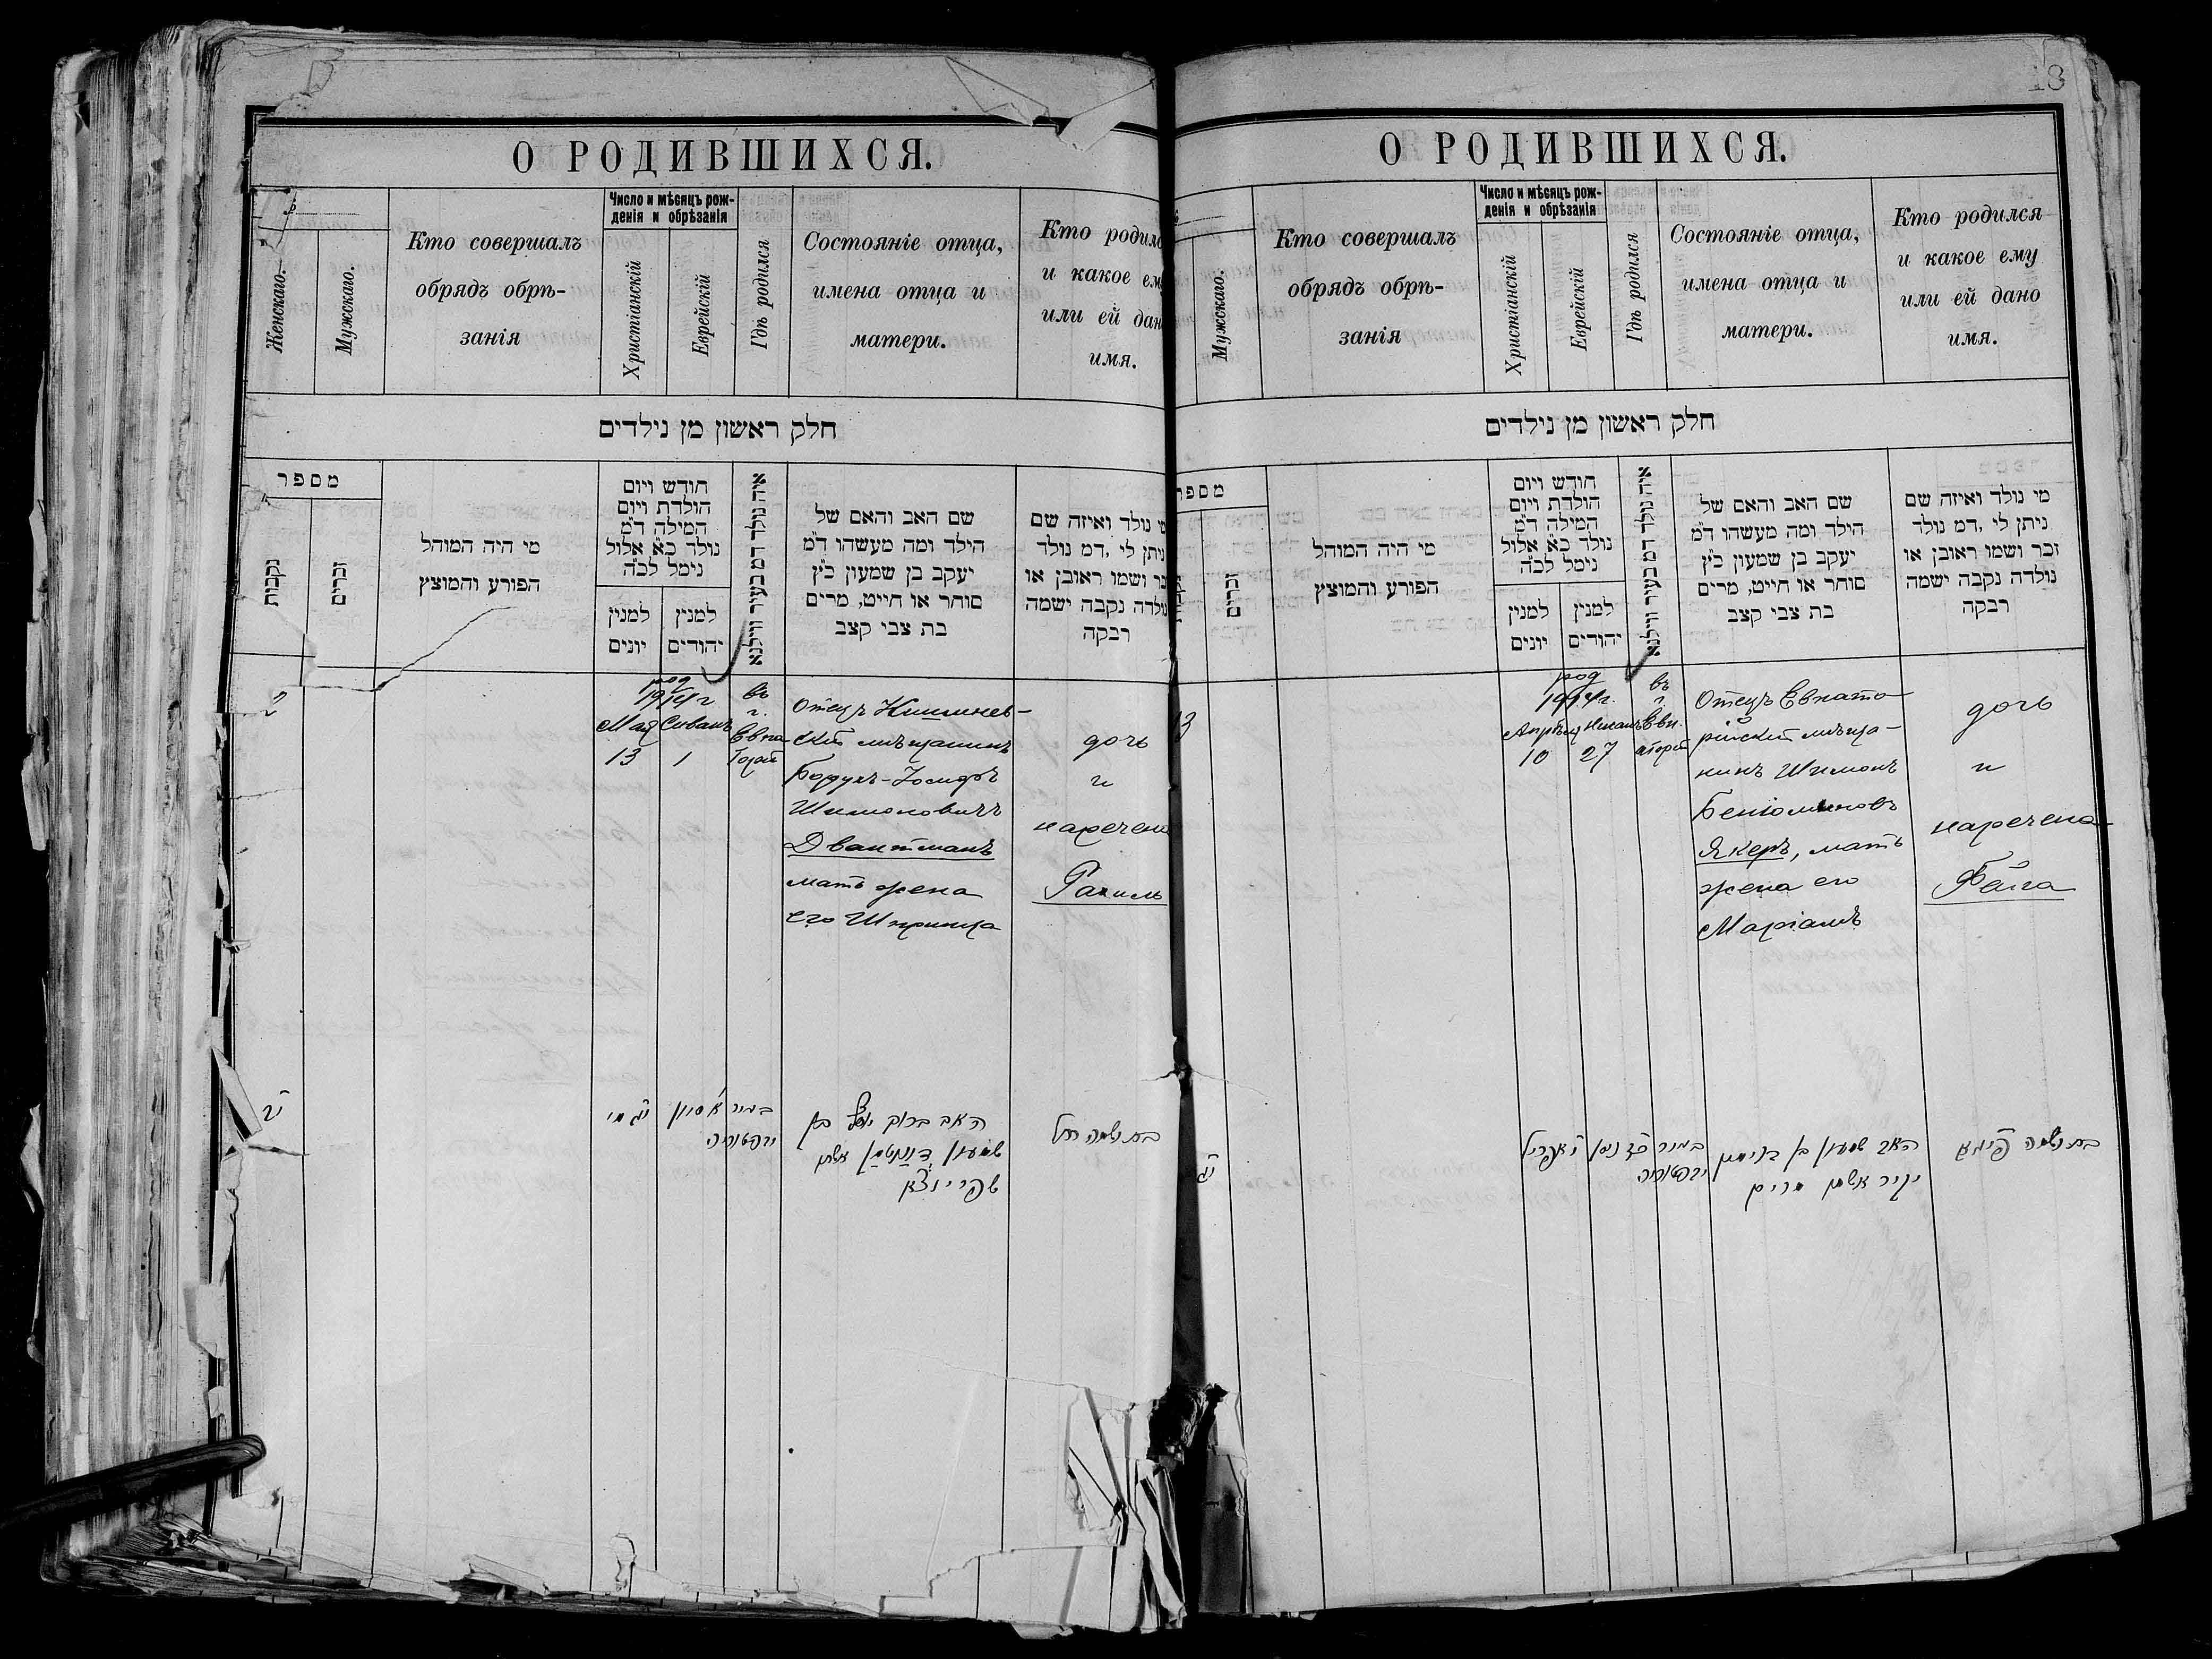 О РОДИВШИХСЯ.
Женскаго.
Мужскаго.
Кто совершалъ
обрядъ обрѣ-
занія
Число и мѣсяцъ рож-
денія и обрѣзанія
Христіанскій
Еврейскій
Гдѣ родился
Состояніе отца,
имена отца и
матери.
Кто родилс
и какое ем
или ей дан
имя.
חלק ראשון מן נילדים
מספר
נקבות
זכרים
מי היה המוהל
הפורע והמוצץ
חודש ויום
הולדת ויום
המילה ד״מ
נולד כ״א אלול
נימל לכ״ה
למנין
יונים
למנין
יהודים
איה נולד דמ בעיר ווילנא
שם האב והאם של
הילד ומה מעשהו ד״מ
יעקב בן שמעון כ״ץ
סוחר או חייט, מרים
בת צבי קצב
מי נולד ואיזה שם
ניתן לי ,דמ נולד
זכר ושמו ראובן או
נולדה נקבה ישמה
רבקה
род
1914 г
Мая
13
Сиванъ
1
въ
г.
Евпа
торіи
Отецъ Кишинев-
скій мѣщанинъ
Борухъ-Іосифъ
Шимоновичъ
Двантманъ
мать жена
его Шпринца
дочь
и
наречена
Рахиль
י״ג מי
א׳ סיון
בעיר
יופטוריה
האב ברוך יוסף בן
שמעון דונטמן אשתו
שפרינצא
בת ושמה רחל
18
О РОДИВШИХСЯ.
Мужскаго.
Кто совершалъ
обрядъ обрѣ-
занія
Число и мѣсяцъ рож-
денія и обрѣзанія
Христіанскій
Еврейскій
Гдѣ родился
Состояніе отца,
имена отца и
матери.
Кто родился
и какое ему
или ей дано
имя.
חלק ראשון מן נילדים
מספר
זכרים
מי היה המוהל
הפורע והמוצץ
חודש ויום
הולדת ויום
המילה ד״מ
נולד כ״א אלול
נימל לכ״ה
למנין
יונים
למנין
יהודים
איה נולד דמ בעיר ווילנא
שם האב והאם של
הילד ומה מעשהו ד״מ
יעקב בן שמעון כ״ץ
סוחר או חייט, מרים
בת צבי קצב
מי נולד ואיזה שם
ניתן לי ,דמ נולד
זכר ושמו ראובן או
נולדה נקבה ישמה
רבקה
13
род
1914 г.
Апрѣля
10
Нисанъ
27
въ
г.
Евп.
аторіи
Отецъ Евпато-
рійскій мѣща-
нинъ Шимонъ
Беніоминовъ
Якеръ, мать
жена его
Маріамъ
дочь
и
наречена
Фейга
י״ג
י׳ אפריל
כ״ז ניסן
בעיר
יופטוריה
האב שמעון בן בנימין
יקיר אשתו מרים
בת ושמה פייגא